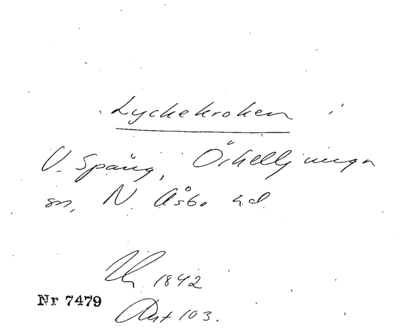 Lyckekroken i
V. Spång, Örkelljunga
sn, N. Åsbo hd
1842
Nr 7479
Avt 103.